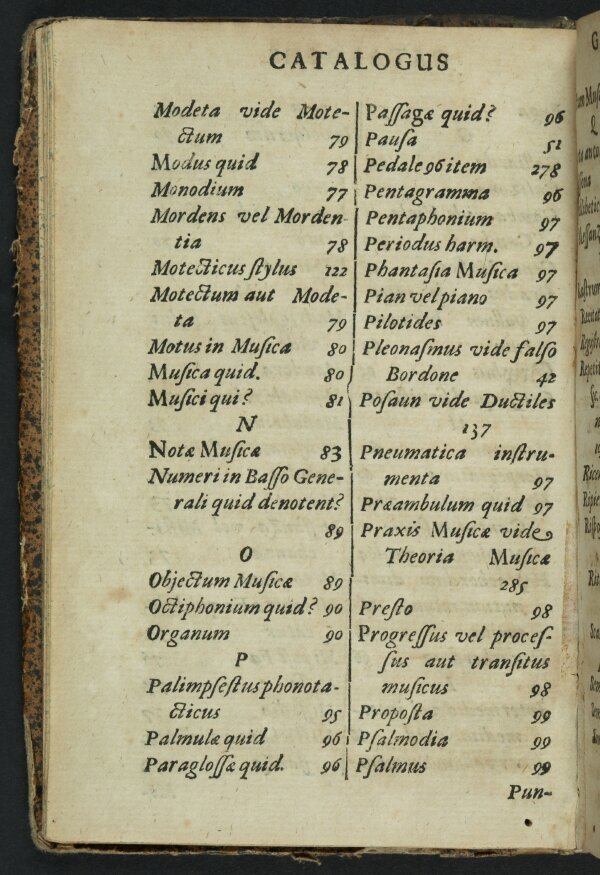 CATALOGUS
Modeta vide Mote-
ctum 79
Modus quid 78
Monodium 77
Mordens vel Morden-
tia 78
Motecticus ſtylus 122
Motectum aut Mode-
ta 79
Motus in Muſica 80
Muſica quid. 80
Muſici qui? 81
N
Notæ Muſicæ 83
Numeri in Baſſo Gene-
rali quid denotent?
89
O
Objectum Muſicæ 89
Octiphonium quid? 90
Organum 90
P
Palimpſeſtus phonota-
cticus 95
Palmulæ quid 96
Paragloſſæ quid. 96
Paſſagæ quid? 96
Pauſa 51
Pedale 96 item 278
Pentagramma 96
Pentaphonium 97
Periodus harm. 97
Phantaſia Muſica 97
Pian vel piano 97
Pilotides 97
Pleonaſmus vide falſo
Bordone 42
Poſaun vide Ductiles
137
Pneumatica inſtru-
menta 97
Præambulum quid 97
Praxis Muſicæ vide
Theoria Muſicæ
285
Preſto 98
Progreſſus vel proceſ-
ſus aut tranſitus
muſicus 98
Propoſta 99
Pſalmodia 99
Pſalmus 99
Pun-